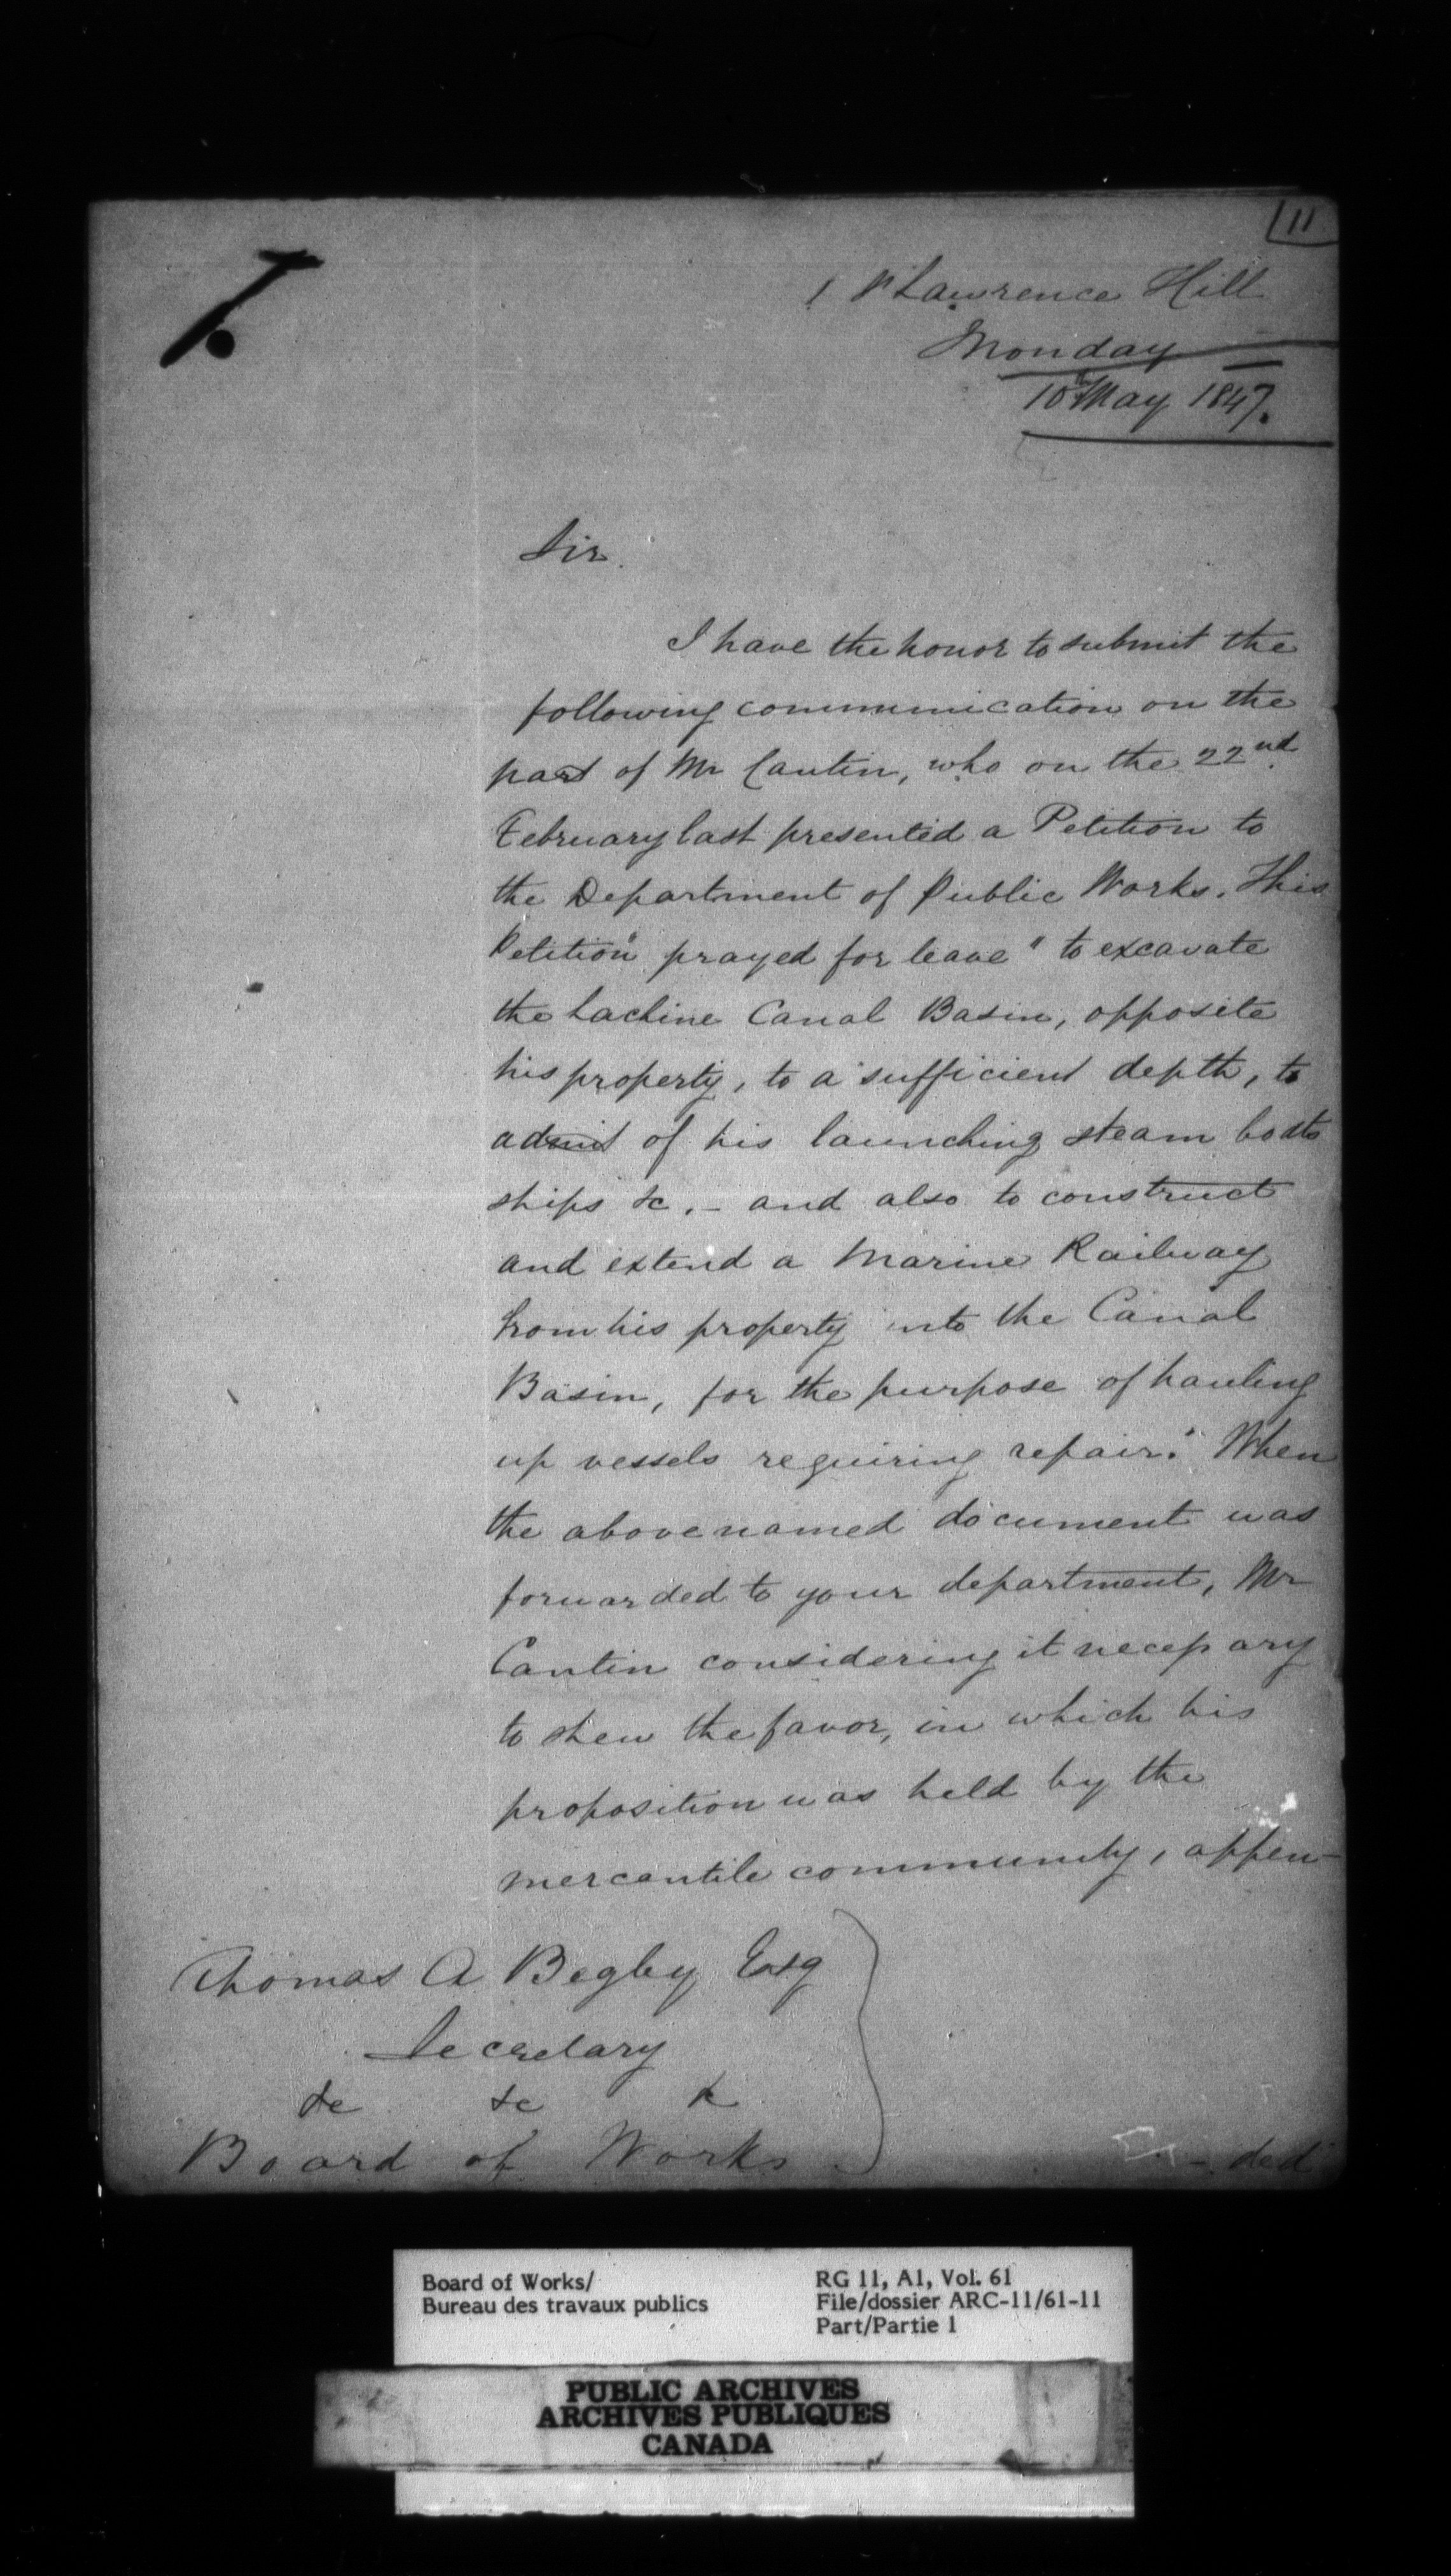 11
1 St Lawrence Hill
Monday
10th May 1847.
Sir.
I have the honor to submit the
following communication on the
part of Mr Cantin, who on the 22nd
February last presented a Petition to
the Department of Public Works. This
Petition "prayed for leave "to excavate
the Lachine Canal Basin, opposite
his property, to a sufficient depth, to
admit of his launching steam boats
ships &c. - and also to construct
and extend a Marine Railway
from his property into the Canal
Basin, for the purpose of hauling
up vessels requiring repair." When
the above named document was
forwarded to your department, Mr
Cantin considering it necessary
to shew the favor, in which his
proposition was held by the
mercantile community, appen-
Thomas A Begley Esq
Secretary
&c &c &
Board of Works
- ded
Board of Works/
Bureau des travaux publics
RG 11, A1, Vol. 61
File/dossier ARC-11/61-11
Part/Partie 1
PUBLIC ARCHIVES
ARCHIVES PUBLIQUES
CANADA